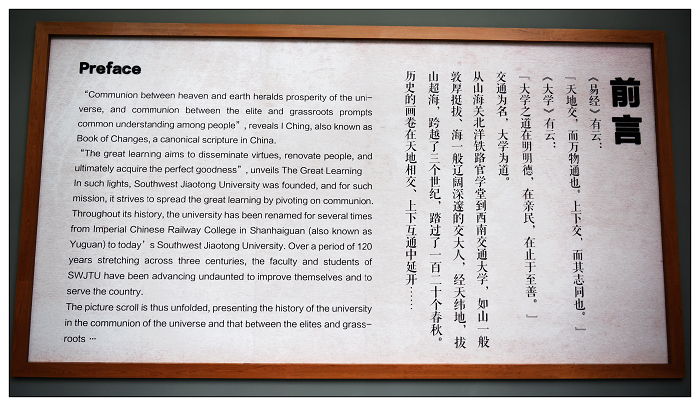 Preface
“Communion between heaven and earth heralds prosperity of the uni-
verse, and communion between the elite and grassroots prompts
common understanding among people”, reveals I Ching, also known as
Book of Changes, a canonical scripture in China.
“The great learning aims to disseminate virtues, renovate people, and
ultimately acquire the perfect goodness”, unveils The Great Learning
In such lights, Southwest Jiaotong University was founded, and for such
mission, it strives to spread the great learning by pivoting on communion.
Throughout its history, the university has been renamed for several times
from Imperial Chinese Railway College in Shanhaiguan (also known as
Yuguan) to today’s Southwest Jiaotong University. Over a period of 120
years stretching across three centuries, the faculty and students of
SWJTU have been advancing undaunted to improve themselves and to
serve the country.
The picture scroll is thus unfolded, presenting the history of the university
in the communion of the universe and that between the elites and grass-
roots …
前言
《易经》有云：
「天地交，而万物通也。上下交，而其志同也。」
《大学》有云：
「大学之道在明明德，在亲民，在止于至善。」
交通为名，大学为道。
从山海关北洋铁路官学堂到西南交通大学，如山一般
敦厚挺拔、海一般辽阔深邃的交大人，经天纬地，拔
山超海，跨越了三个世纪，踏过了一百二十个春秋。
历史的画卷在天地相交、上下互通中延开……